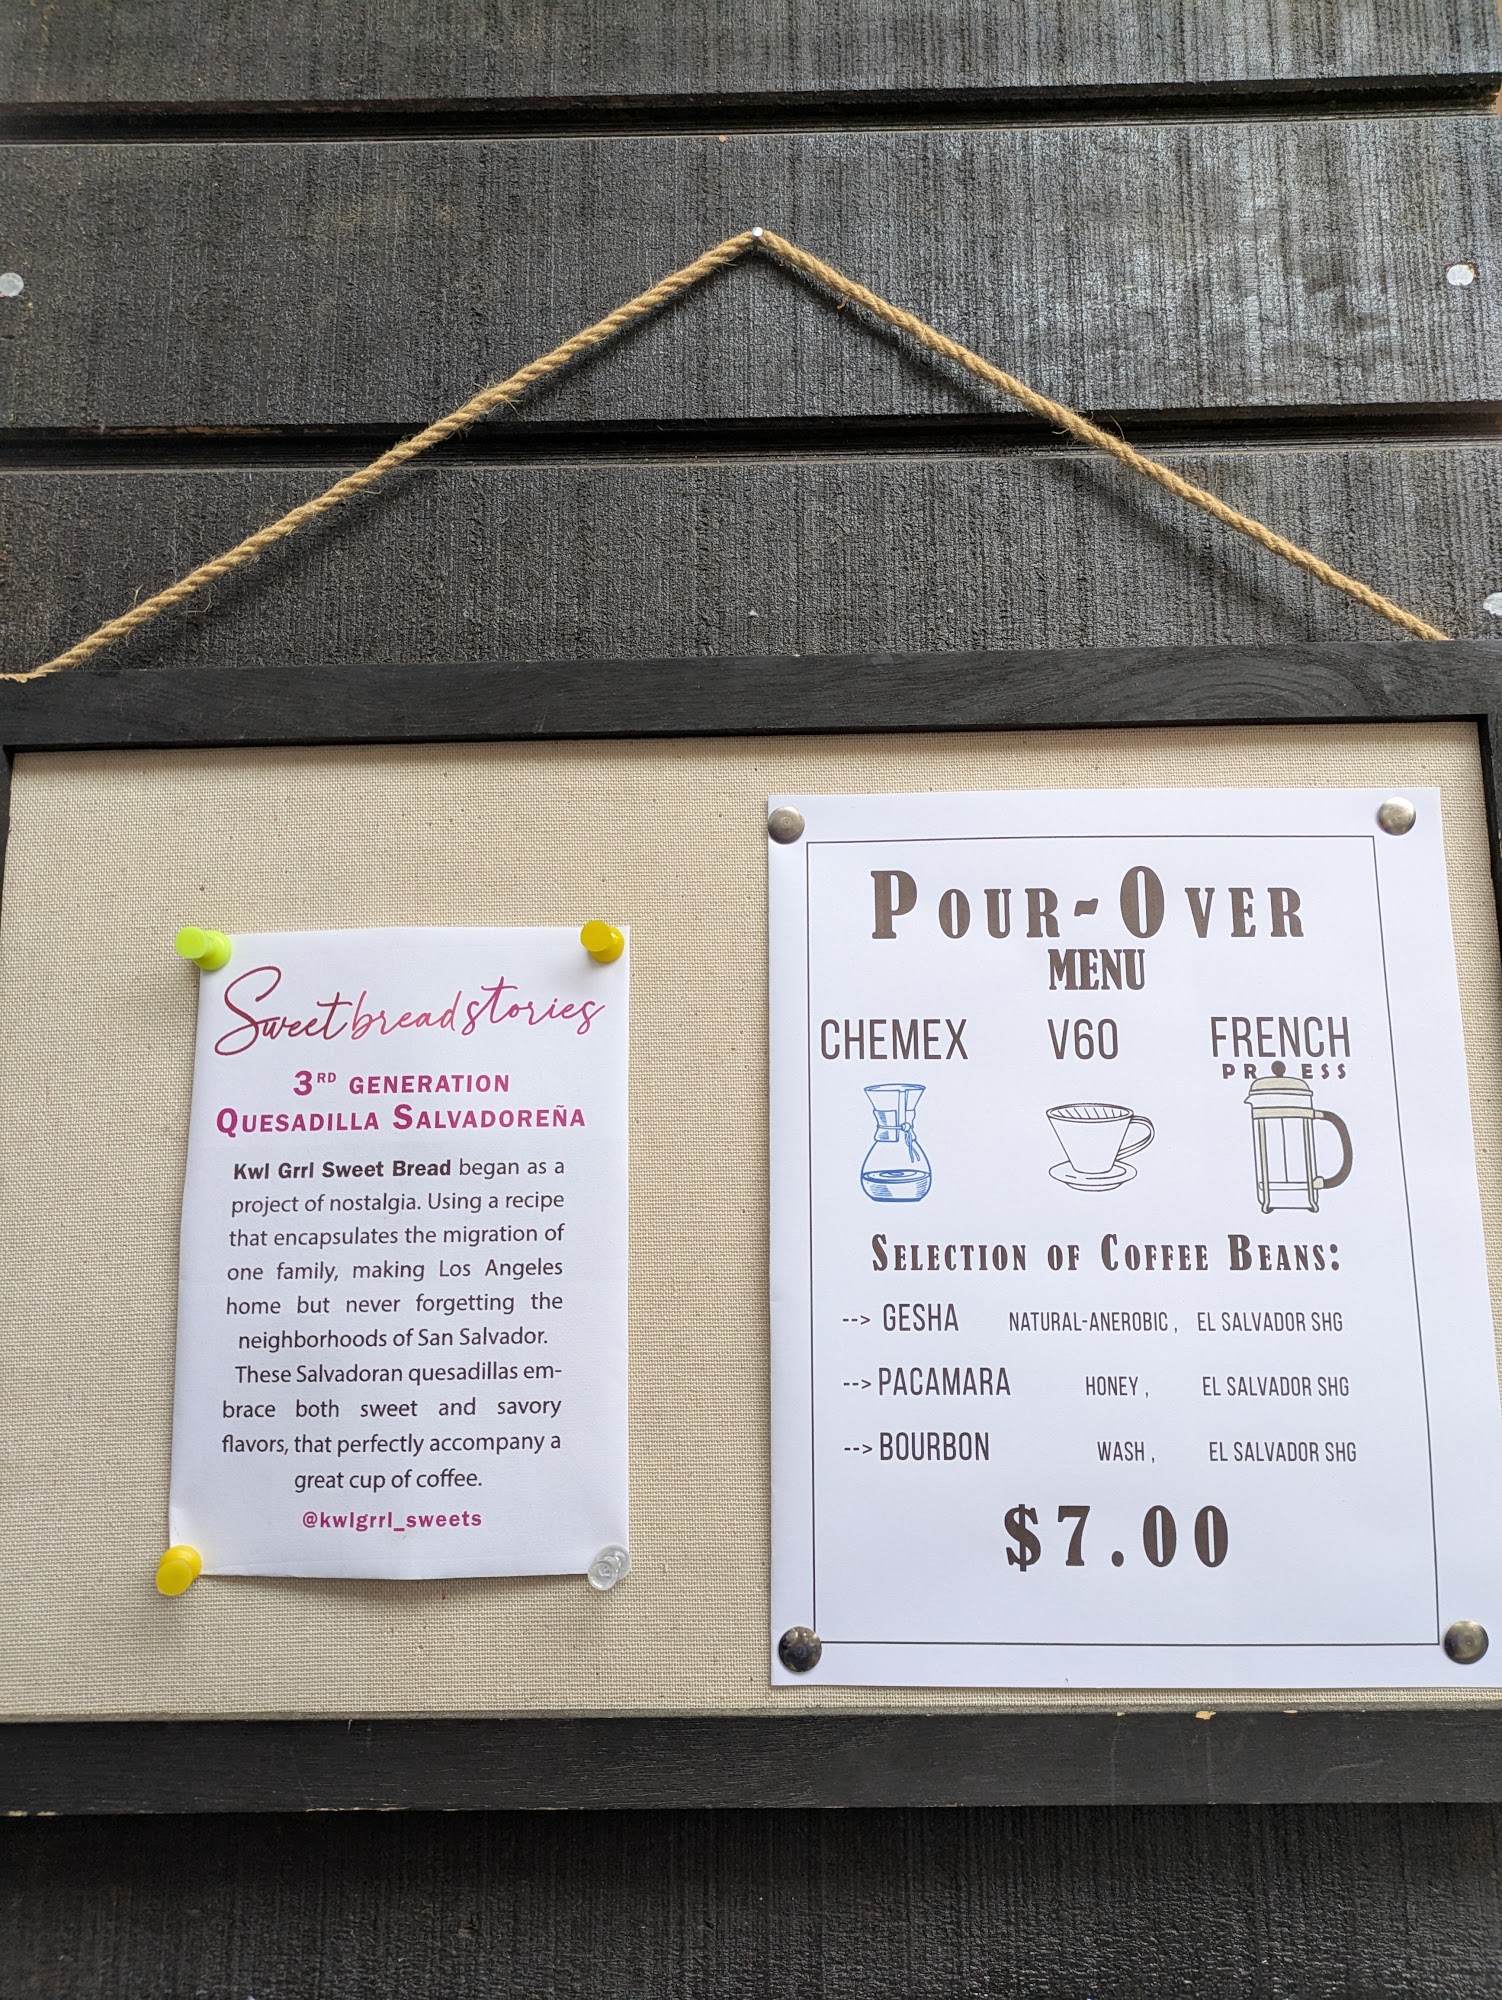 Sweetbreadstories
3RD GENERATION
QUESADILLA SALVADOREÑA
Kwl Grrl Sweet Bread began as a
project of nostalgia. Using a recipe
that encapsulates the migration of
one family, making Los Angeles
home but never forgetting the
neighborhoods of San Salvador.
These Salvadoran quesadillas em-
brace both sweet and savory
flavors, that perfectly accompany a
great cup of coffee.
@kwlgrrl_sweets
POUR-OVER
MENU
CHEMEX V60 FRENCH
PRESS
SELECTION OF COFFEE BEANS:
--> GESHA NATURAL-ANEROBIC, EL SALVADOR SHG
--> PACAMARA HONEY, EL SALVADOR SHG
--> BOURBON WASH, EL SALVADOR SHG
$7.00